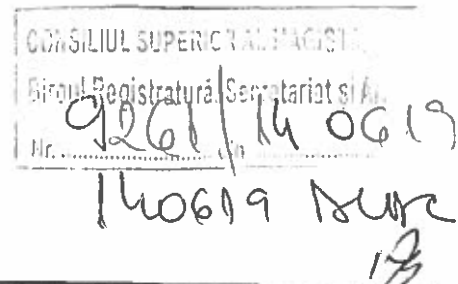 CONSILIUL SUPERIOR AL MAGIST
Biroul Registratură, Secretariat și A
Nr. 9261/14 06 19
140619